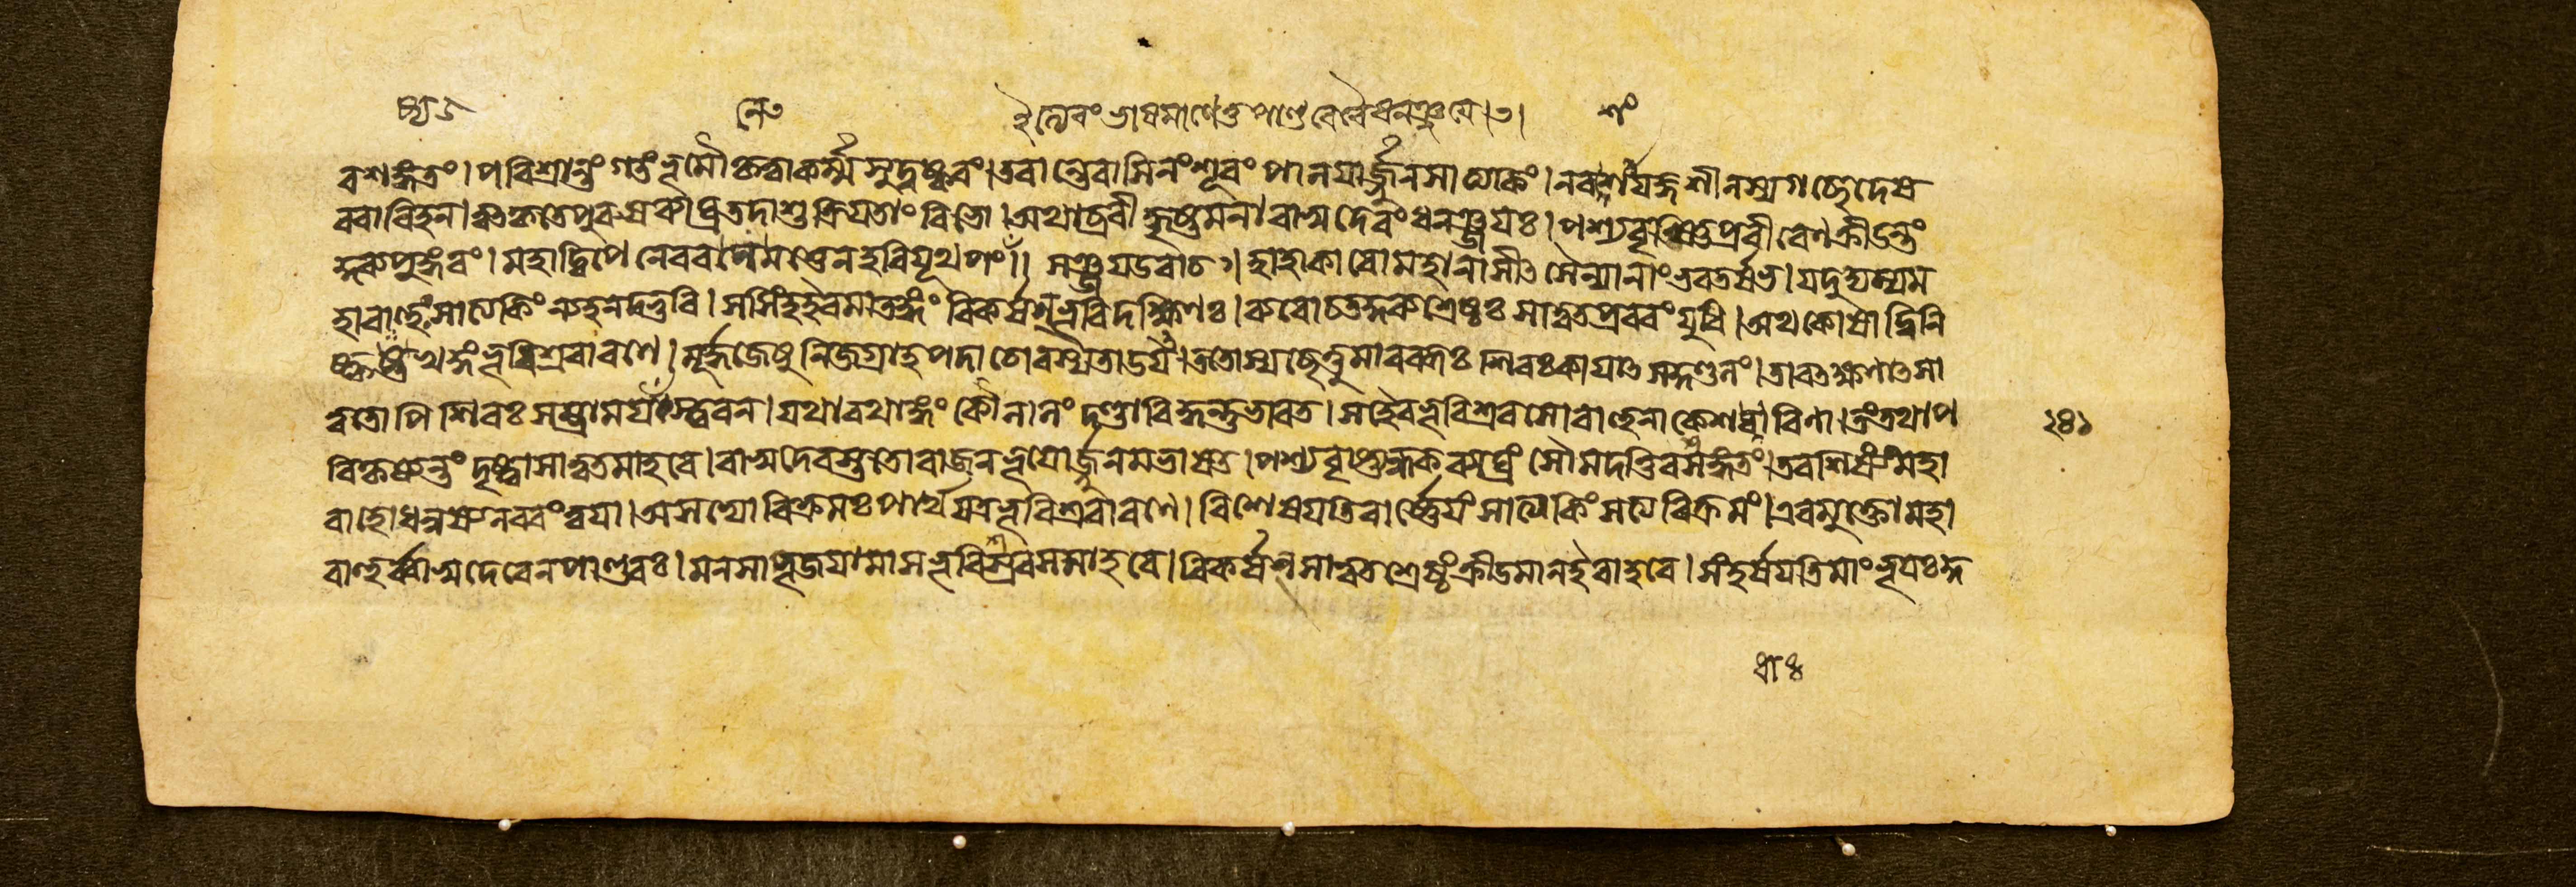 ইত্যেবং ভাষমাণে তু পাণ্ডবে বৈ ধনঞ্জয়ে।
বশঙ্গতং। পরিশ্রান্তং গতং ভূমৌ কৃত্বা কর্ম্ম সুদুষ্করং। তবান্তেবাসিনং শূরং পালয়ার্জ্জুন সাত্যকিং। ন বশং যজ্ঞশীলস্য গচ্ছেদেষ
বরারিহন। ত্বত্কৃতে পুরুষব্যাঘ্র তদাশু ক্রিয়তাং বিভো। অথাব্রবীদ্ধৃষ্টমনা বাসুদেবং ধনঞ্জয়ঃ। পশ্য বৃষ্ণিপ্রবীরেণ ক্রীডন্তং
কুরুপুঙ্গবং। মহাদ্বিপেনেব বনে মত্তেন হরিযূথপং॥ সঞ্জয় উবাচ। হাহাকারো মহানাসীৎ সৈন্যানাং ভরতর্ষভ। যদুদ্যম্য ম
হাবাহুঃ সাত্যকিং ন্যহনদ্ভুবি। স সিংহ ইব মাতঙ্গং বিকর্ষন্ ভূরিদক্ষিণঃ। ব্যরোচত কুরুশ্রেষ্ঠঃ সাত্বতপ্রবরং যুধি। অথ কোষাদ্বিনি
ষ্কৃষ্য খড়্গং ভূরিশ্রবা রণে। মূর্দ্ধজেষু নিজগ্রাহ পদা চোরস্যতাডয়ৎ। ততোস্য ছেত্তুমারব্ধঃ শিরঃ কায়াৎ সকুণ্ডলং। তাবৎক্ষণাৎ সা
ত্বতোপি শিরঃ সম্ভ্রাময়ংস্ত্বরন। যথা রথাঙ্গং কৌলালং দণ্ডবিদ্ধন্তু ভারত। সহৈব ভূরিশ্রবসো বাহুনা কেশধারিণা। তং তথা প
রিকৃষ্যন্তং দৃষ্ট্বা সাত্বতমাহবে। বাসুদেবস্ততো রাজন ভূয়োর্জ্জুনমভাষত। পশ্য বৃষ্ণ্যন্ধকব্যাঘ্রং সৌমদত্তিবশঙ্গতং। তব শিষ্যং মহা
বাহো ধনুষ্যনবরং ত্বয়া। অসত্যো বিক্রমঃ পার্থ যত্র ভূরিশ্রবা রণে। বিশেষয়তি বার্ষ্ণেয়ং সাত্যকিং সত্যবিক্রমং। এবমুক্তো মহা
বাহুর্ব্বাসুদেবেন পাণ্ডবঃ। মনসা পূজয়ামাস ভূরিশ্রবসমাহবে। বিকর্ষন্ সাত্বতশ্রেষ্ঠং ক্রীডমান ইবাহবে। সংহর্ষয়তি মাং ভূয়ঃ কু
২৪১